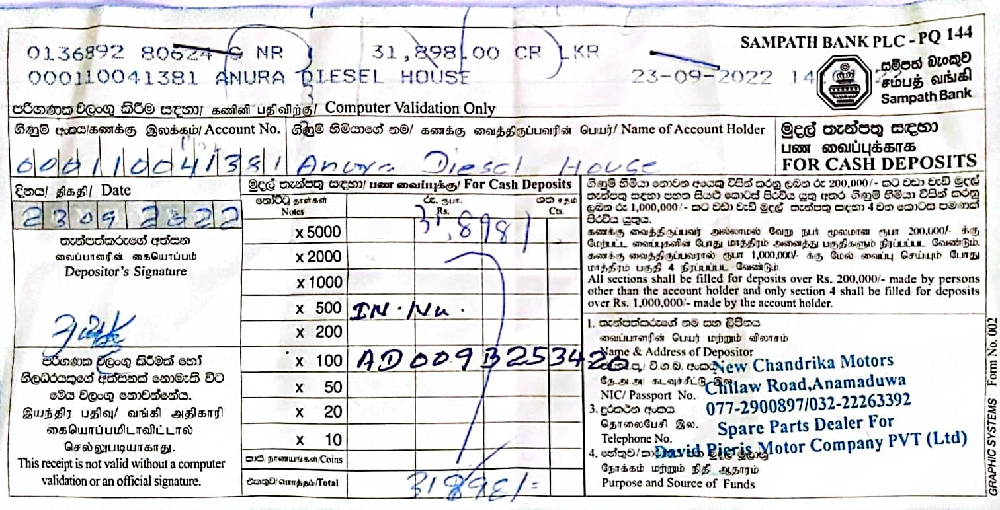 0136892 80624 G NR 31,898.00 CR LKR
000110041381 ANURA DIESEL HOUSE 23-09-2022
SAMPATH BANK PLC - PQ 144
සම්පත් බැංකුව
சம்பத் வங்கி
Sampath Bank
පරිගණක වලංගු කිරීම සඳහා/ கணினி பதிவிற்கு/ Computer Validation Only
ගිණුම් අංකය/கணக்கு இலக்கம்/ Account No. ගිණුම් හිමියාගේ නම/ கணக்கு வைத்திருப்பவரின் பெயர்/ Name of Account Holder
000110041381 Anura Diesel House
මුදල් තැන්පතු සඳහා
பண வைப்புக்காக
FOR CASH DEPOSITS
දිනය/ திகதி/ Date
23 09 2022
තැන්පත්කරුගේ අත්සන
வைப்பாளரின் கையொப்பம்
Depositor's Signature
පරිගණක වලංගු කිරීමක් හෝ
නිලධරයකුගේ අත්සනක් නොමැති විට
මෙය වලංගු නොවන්නේය.
இயந்திர பதிவு/ வங்கி அதிகாரி
கையொப்பமிடாவிட்டால்
செல்லுபடியாகாது.
This receipt is not valid without a computer
validation or an official signature.
මුදල් තැන්පතු සඳහා/ பண வைப்புக்கு/ For Cash Deposits
නෝට්ටු தாள்கள் රු. ரூபா. ශත சதம்
Notes Rs. Cts.
x 5000 31,898/
x 2000
x 1000
x 500 IN. No.
x 200
x 100 AD0093253420
x 50
x 20
x 10
කාසි நாணயங்கள்/Coins
එකතුව/மொத்தம்/Total 31898/=
ගිණුම් හිමියා නොවන අයෙකු විසින් කරනු ලබන රු 200,000/- කට වඩා වැඩි මුදල්
තැන්පතු සඳහා පහත සියළු කොටස් පිරවිය යුතු අතර ගිණුම් හිමියා විසින් කරනු
ලබන රු 1,000,000/- කට වඩා වැඩි මුදල් තැන්පතු සඳහා 4 වන කොටස පමණක්
පිරවිය යුතුය.
கணக்கு வைத்திருப்பவர் அல்லாமல் வேறு நபர் மூலமான ரூபா 200,000/- க்கு
மேற்பட்ட வைப்புகளின் போது மாத்திரம் அனைத்து பகுதிகளும் நிரப்பப்பட வேண்டும்.
கணக்கு வைத்திருப்பவரால் ரூபா 1,000,000/- க்கு மேல் வைப்பு செய்யும் போது
மாத்திரம் பகுதி 4 நிரப்பப்பட வேண்டும்.
All sections shall be filled for deposits over Rs. 200,000/- made by persons
other than the account holder and only section 4 shall be filled for deposits
over Rs. 1,000,000/- made by the account holder.
1. තැන්පත්කරුගේ නම සහ ලිපිනය
வைப்பாளரின் பெயர் மற்றும் விலாசம்
Name & Address of Depositor
New Chandrika Motors
NIC/ Passport No.
Chilaw Road,Anamaduwa
3. දුරකථන අංකය
077-2900897/032-22263392
தொலைபேசி இல.
Telephone No.
Spare Parts Dealer For
David Pieris Motor Company PVT (Ltd)
நோக்கம் மற்றும் நிதி ஆதாரம்
Purpose and Source of Funds
GRAPHIC SYSTEMS Form No. 002